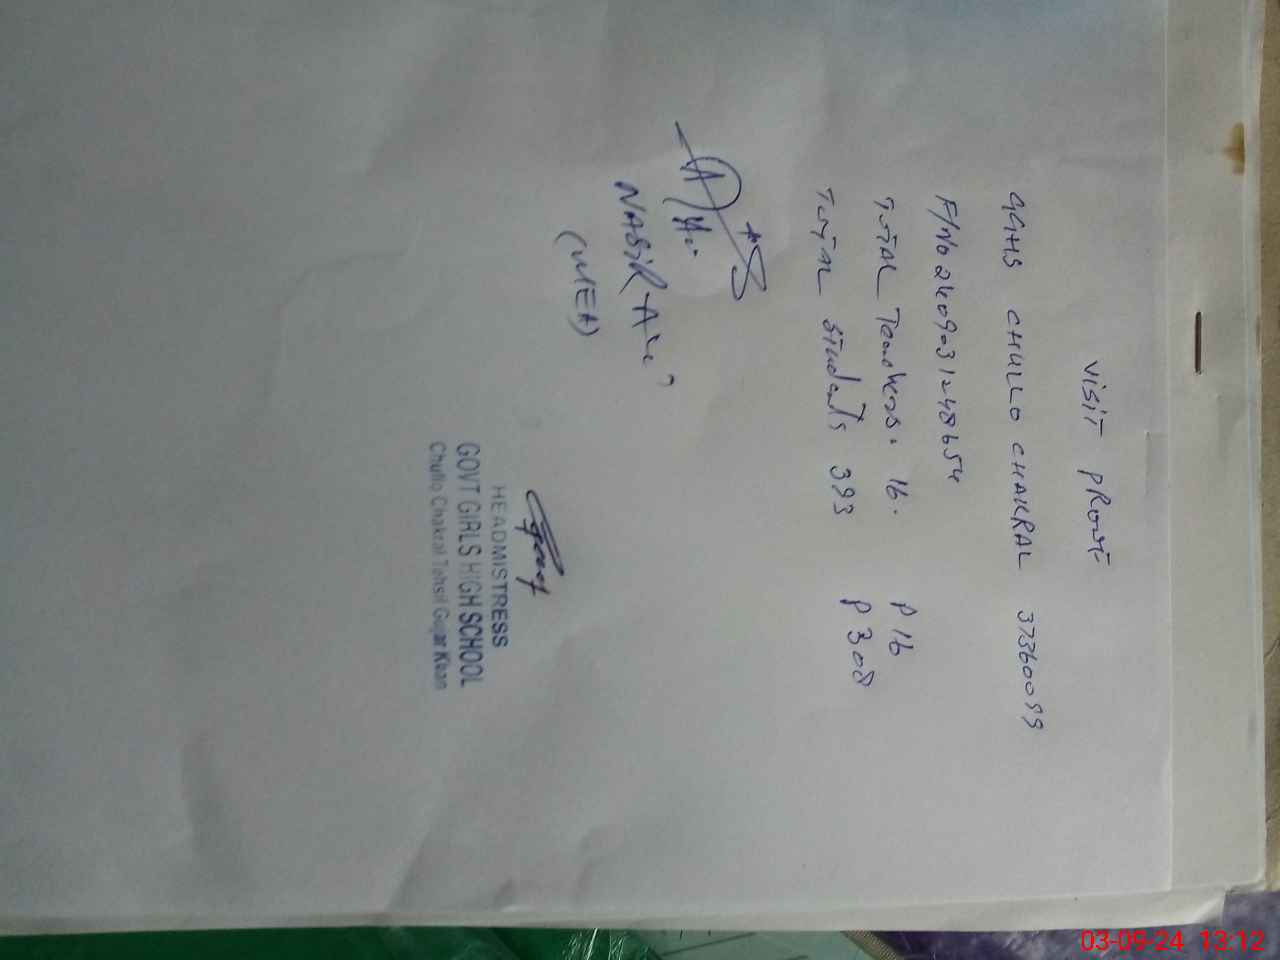 VISIT PROOF
GGHS CHULLO CHAKRAL 37360099
F/No 2409031248654
TOTAL Teachers. 16. P 16
TOTAL Students 393 P 308
NASIR ALI
(MEA)
HEADMISTRESS
GOVT GIRLS HIGH SCHOOL
Chullo Chakral Tehsil Gujar Khan
03-09-24 13:12